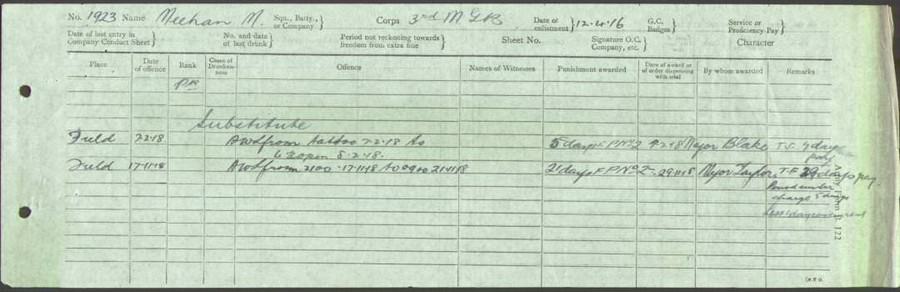 No. 1923 Name Meehan M. Sqn., Batty., or Company} Corps 3rd MGB Date of enlistment} 12.4.16 G.C. Badges} Service or Proficiency Pay}
Date of last entry in Company Conduct Sheet} No. and date of last drunk} Period not reckoning towards freedom from extra fine} Sheet No. Signature O.C. Company, etc.} Character
Place Date of offence Rank Cases of Drunkenness Offence Names of Witnesses Punishment awarded Date of award or of order dispensing with trial By whom awarded Remarks
Pte
Substitute
Field 2.2.18 Awol from tattoo 2.2.18 to 5 days F.P. No 2 Major Blake T.F. days
6.30pm 5.2.18. pay
Field 17.11.18 Awol from 2100 17.11.18 to 0940 21.11.18 21 days F.P. No 2 29.11.18 Major Taylor T.F. days pay.
under
charge 5 days
122